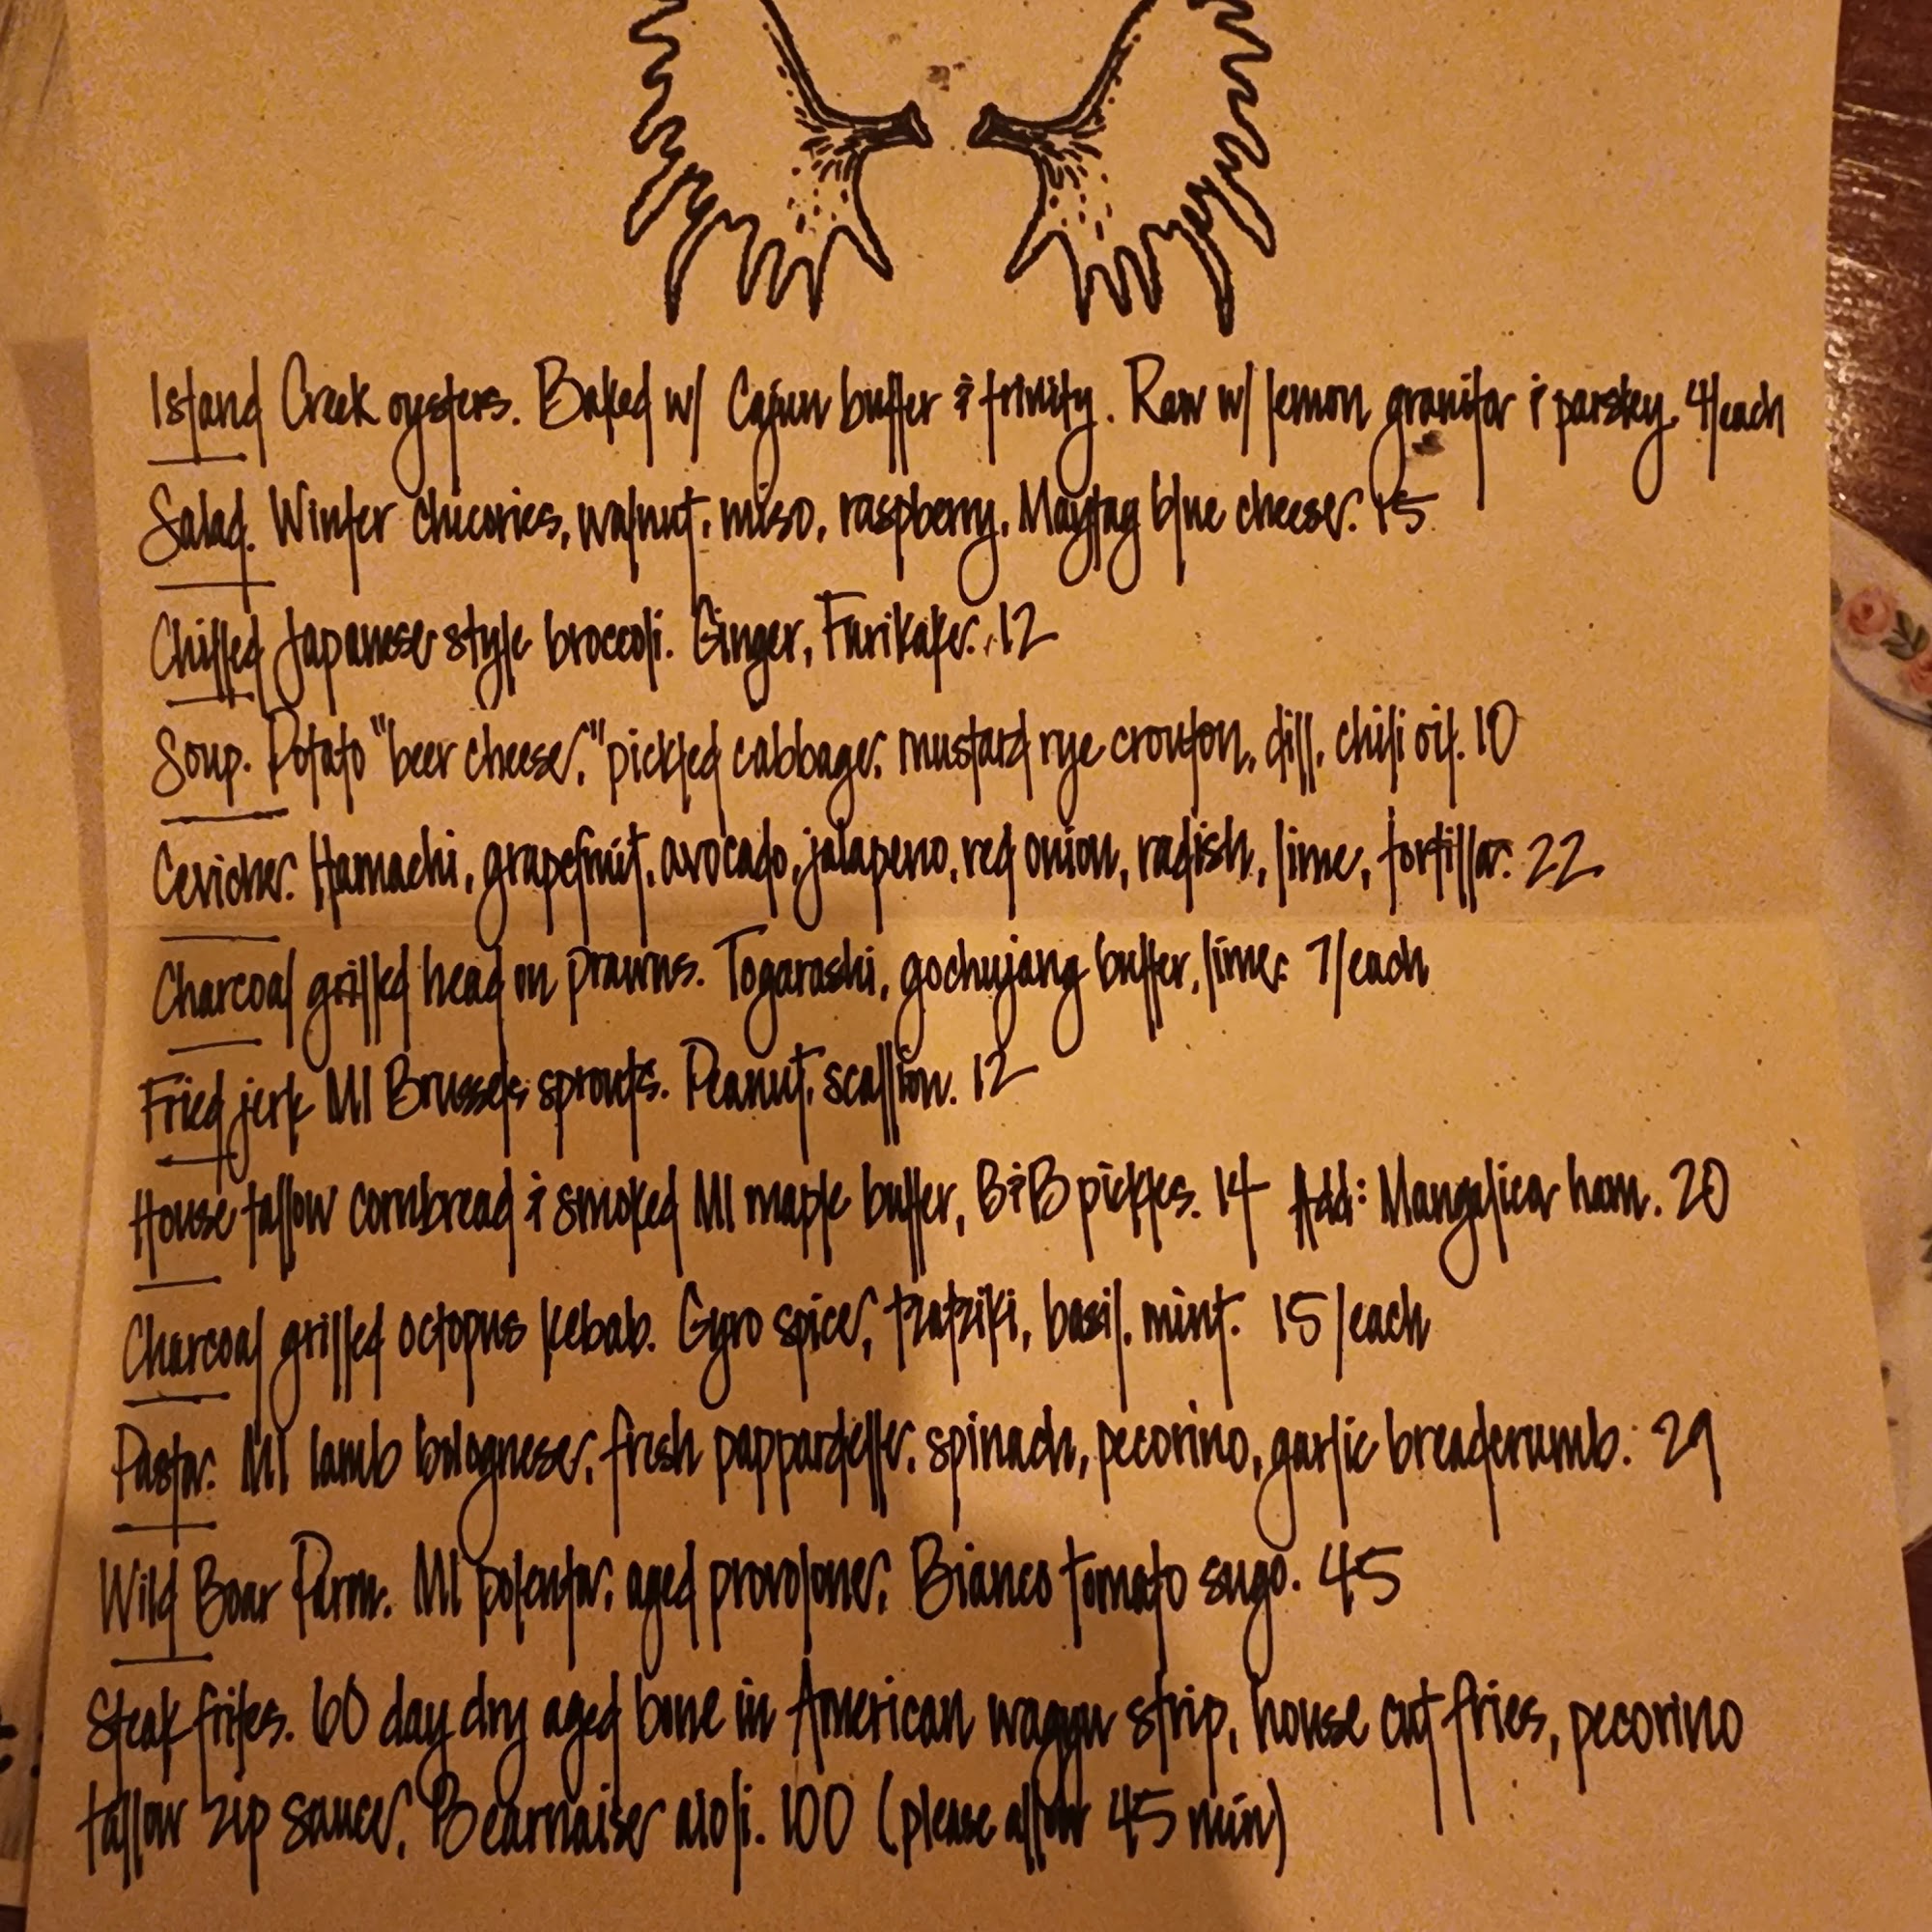 Island Creek oysters. Baked w/ Cajun butter & trinity. Raw w/ lemon granita & parsley. 4/each
Salad. Winter chicories, walnut, miso, raspberry, Maytag blue cheese. 15
Chilled Japanese style broccoli. Ginger, Furikake. 12
Soup. Potato "beer cheese," pickled cabbage, mustard rye crouton, dill, chili oil. 10
Ceviche. Hamachi, grapefruit, avocado, jalapeno, red onion, radish, lime, tortilla. 22
Charcoal grilled head on prawns. Togarashi, gochujang butter, lime. 7/each
Fried jerk MI Brussels sprouts. Peanut, scallion. 12
House tallow cornbread & smoked MI maple butter, B&B pickles. 14 Add: Mangalica ham. 20
Charcoal grilled octopus kebab. Gyro spice, tzatziki, basil, mint. 15/each
Pasta. MI lamb bolognese, fresh pappardelle, spinach, pecorino, garlic breadcrumb. 29
Wild Boar Parm. MI polenta, aged provolone, Bianco tomato sugo. 45
Steak frites. 60 day dry aged bone in American wagyu strip, house cut fries, pecorino
tallow zip sauce, Bearnaise aioli. 100 (please allow 45 min)